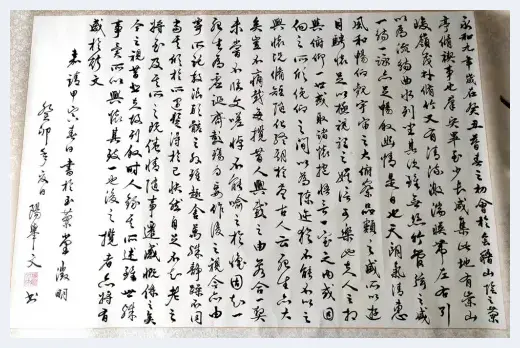 永和九年歲在癸丑暮春之初會於會稽山陰之蘭
亭脩禊事也群賢畢至少長咸集此地有崇山
峻嶺茂林脩竹又有清流激湍映帶左右引
以為流觴曲水列坐其次雖無絲竹管弦之盛
一觴一詠亦足以暢敘幽情是日也天朗氣清惠
風和暢仰觀宇宙之大俯察品類之盛所以遊
目騁懷足以極視聽之娛信可樂也夫人之相
與俯仰一世或取諸懷抱悟言一室之內或因
向之所欣俛仰之間以為陳迹猶不能不以之
興懷況脩短隨化終期於盡古人云死生亦大
矣豈不痛哉每攬昔人興感之由若合一契
未嘗不臨文嗟悼不能喻之於懷固知一
死生為虛誕齊彭殤為妄作後之視今亦由
寄所託放浪形骸之外雖趣舍萬殊靜躁不同
當其欣於所遇暫得於己快然自足不知老之
將至及其所之既倦情隨事遷感慨係之矣
今之視昔悲夫故列敘時人錄其所述雖世殊
事異所以興懷其致一也後之攬者亦將有
感於斯文
嘉靖甲寅春日書於玉蘭堂徵明
癸卯年夏日陽華文書